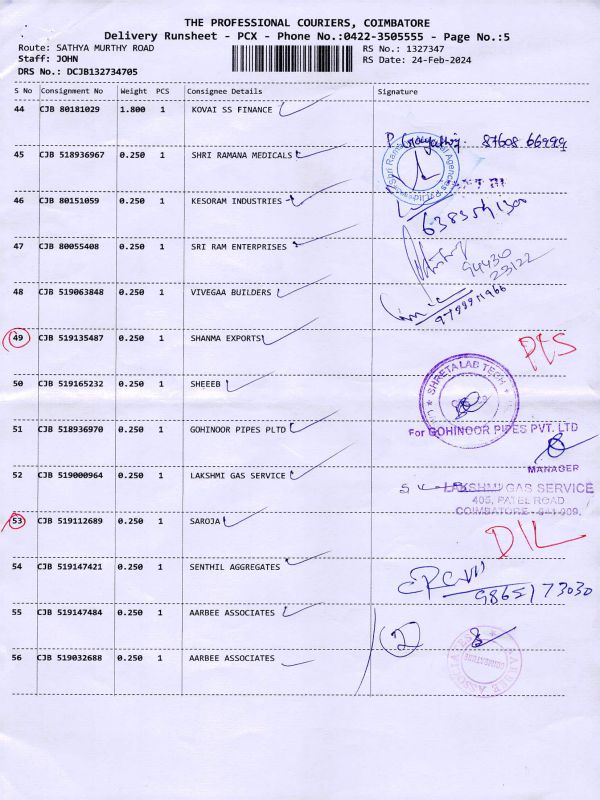 THE PROFESSIONAL COURIERS, COIMBATORE
Delivery Runsheet - PCX - Phone No.:0422-3505555 - Page No.:5
Route: SATHYA MURTHY ROAD RS No.: 1327347
Staff: JOHN RS Date: 24-Feb-2024
DRS No.: DCJB132734705
S No Consignment No Weight PCS Consignee Details Signature
44 CJB 80181029 1.800 1 KOVAI SS FINANCE
87608 66999
45 CJB 518936967 0.250 1 SHRI RAMANA MEDICALS
46 CJB 80151059 0.250 1 KESORAM INDUSTRIES
47 CJB 80055408 0.250 1 SRI RAM ENTERPRISES
94430
23122
48 CJB 519063848 0.250 1 VIVEGAA BUILDERS
49 CJB 519135487 0.250 1 SHANMA EXPORTS
50 CJB 519165232 0.250 1 SHEEEB
SHRETA LAB TECH
51 CJB 518936970 0.250 1 GOHINOOR PIPES PLTD
For GOHINOOR PIPES PVT. LTD
MANAGER
52 CJB 519000964 0.250 1 LAKSHMI GAS SERVICE
LAKSHMI GAS SERVICE
405, PATEL ROAD
COIMBATORE - 641 009.
53 CJB 519112689 0.250 1 SAROJA
DIL
54 CJB 519147421 0.250 1 SENTHIL AGGREGATES
9865173030
55 CJB 519147484 0.250 1 AARBEE ASSOCIATES
2
56 CJB 519032688 0.250 1 AARBEE ASSOCIATES